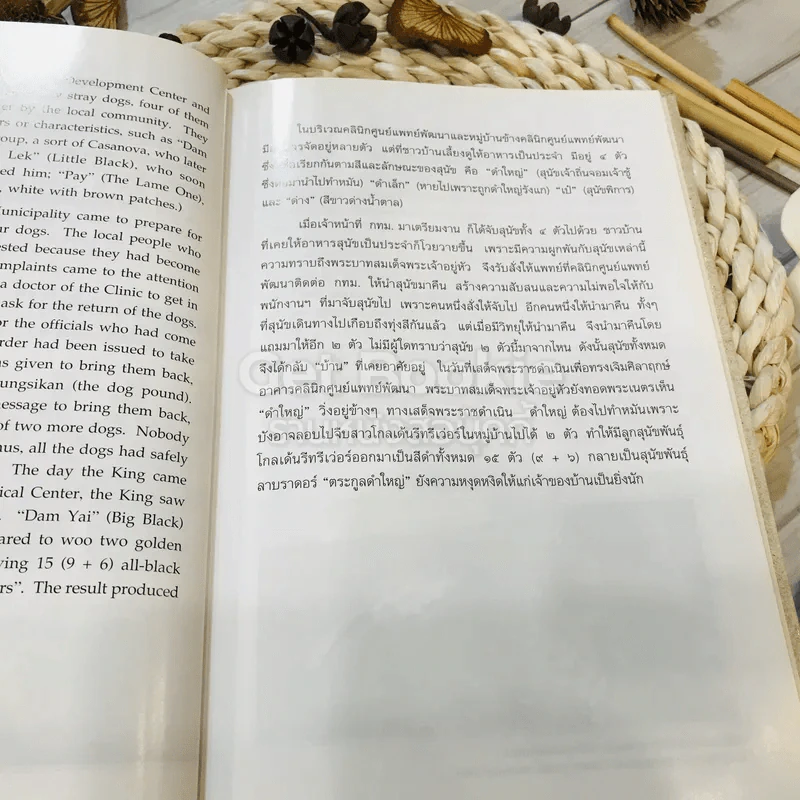 Development Center and
stray dogs, four of them
by the local community. They
or characteristics, such as "Dam
group, a sort of Casanova, who later
Lek" (Little Black), who soon
him; "Pay" (The Lame One).
white with brown patches.)
Municipality came to prepare for
dogs. The local people who
because they had become
complaints came to the attention
a doctor of the Clinic to get in
ask for the return of the dogs.
for the officials who had come
order had been issued to take
was given to bring them back,
(the dog pound).
message to bring them back,
of two more dogs. Nobody
Thus, all the dogs had safely
The day the King came
Medical Center, the King saw
"Dam Yai" (Big Black)
to woo two golden
15 (9 + 6) all-black
The result produced
ในบริเวณคลินิกศูนย์แพทย์พัฒนาและหมู่บ้านข้างคลินิกศูนย์แพทย์พัฒนา
จัดอยู่หลายตัว แต่ที่ชาวบ้านเลี้ยงดูให้อาหารเป็นประจำ มีอยู่ ๔ ตัว
ซึ่งเรียกกันตามสีและลักษณะของสุนัข คือ "ดำใหญ่" (สุนัขเจ้าถิ่นจอมเจ้าชู้
ซึ่งต่อมานำไปทำหมัน) "ดำเล็ก" (หายไปเพราะถูกดำใหญ่รังแก) "เป๋" (สุนัขพิการ)
และ "ด่าง" (สีขาวด่างน้ำตาล)
เมื่อเจ้าหน้าที่ กทม. มาเตรียมงาน ก็ได้จับสุนัขทั้ง ๔ ตัวไปด้วย ชาวบ้าน
ที่เคยให้อาหารสุนัขเป็นประจำก็โวยวายขึ้น เพราะมีความผูกพันกับสุนัขเหล่านี้
ความทราบถึงพระบาทสมเด็จพระเจ้าอยู่หัว จึงรับสั่งให้แพทย์ที่คลินิกศูนย์แพทย์
พัฒนาติดต่อ กทม. ให้นำสุนัขมาคืน สร้างความสับสนและความไม่พอใจให้กับ
พนักงานฯ ที่มาจับสุนัขไป เพราะคนหนึ่งสั่งให้จับไป อีกคนหนึ่งให้นำมาคืน ทั้งๆ
ที่สุนัขเดินทางไปเกือบถึงทุ่งสีกันแล้ว แต่เมื่อมีวิทยุให้นำมาคืน จึงนำมาคืนโดย
แถมมาให้อีก ๒ ตัว ไม่มีผู้ใดทราบว่าสุนัข ๒ ตัวนี้มาจากไหน ดังนั้นสุนัขทั้งหมด
จึงได้กลับ "บ้าน" ที่เคยอาศัยอยู่ ในวันที่เสด็จพระราชดำเนินเพื่อทรงเจิมศิลาฤกษ์
อาคารคลินิกศูนย์แพทย์พัฒนา พระบาทสมเด็จพระเจ้าอยู่หัวยังทอดพระเนตรเห็น
"ดำใหญ่" วิ่งอยู่ข้างๆ ทางเสด็จพระราชดำเนิน ดำใหญ่ ต้องไปทำหมันเพราะ
บังอาจลอบไปจีบสาวโกลเด้นรีทรีเว่อร์ในหมู่บ้านไปได้ ๒ ตัว ทำให้มีลูกสุนัขพันธุ์
โกลเด้นรีทรีเว่อร์ออกมาเป็นสีดำทั้งหมด ๑๕ ตัว (๙ + ๖) กลายเป็นสุนัขพันธุ์
ลาบราดอร์ "ตระกูลดำใหญ่" ยังความหงุดหงิดให้แก่เจ้าของบ้านเป็นยิ่งนัก